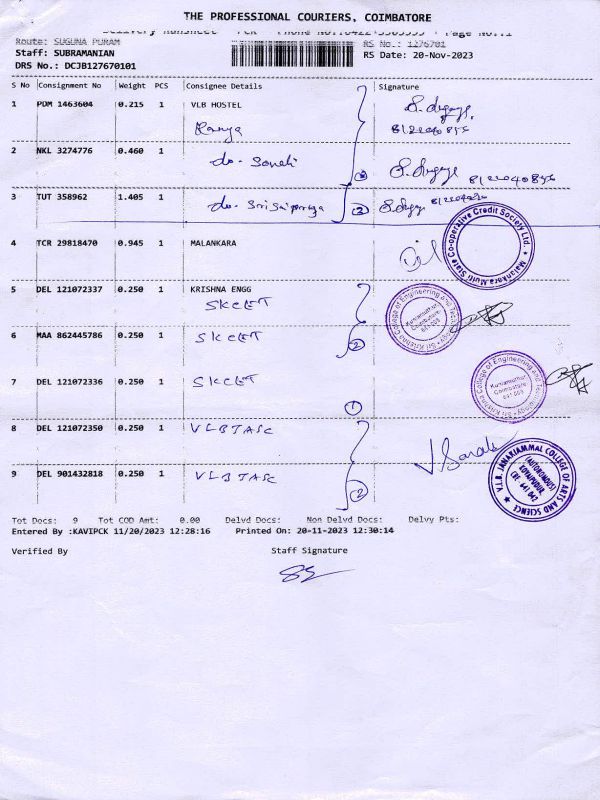 THE PROFESSIONAL COURIERS, COIMBATORE
Delivery Runsheet PCK Phone No.: Page No.:1
Route: SUGUNA PURAM RS No.: 1276701
Staff: SUBRAMANIAN RS Date: 20-Nov-2023
DRS No.: DCJB127670101
S No Consignment No Weight PCS Consignee Details Signature
1 PDM 1463604 0.215 1 VLB HOSTEL
Ramya
2 NKL 3274776 0.460 1 do-
3 TUT 358962 1.405 1 do- (3)
4 TCR 29818470 0.945 1 MALANKARA
Malankara Multi State Co-operative Credit Society Ltd.
5 DEL 121072337 0.250 1 KRISHNA ENGG
SKCET
Sri Krishna College of Engineering and Technology
Kuniamuthur Coimbatore 641 008
6 MAA 862445786 0.250 1 SKCET (2)
7 DEL 121072336 0.250 1 SKCET (1)
Sri Krishna College of Engineering and Technology
Kuniamuthur Coimbatore 641 008
8 DEL 121072350 0.250 1 VLBJASC
9 DEL 901432818 0.250 1 VLBJASC (2)
V.L.B. JANAKIAMMAL COLLEGE OF ARTS AND SCIENCE
(AUTONOMOUS) KOVAIPUDUR CBE- 641 042
Tot Docs: 9 Tot COD Amt: 0.00 Delvd Docs: Non Delvd Docs: Delvy Pts:
Entered By :KAVIPCK 11/20/2023 12:28:16 Printed On: 20-11-2023 12:30:14
Verified By Staff Signature